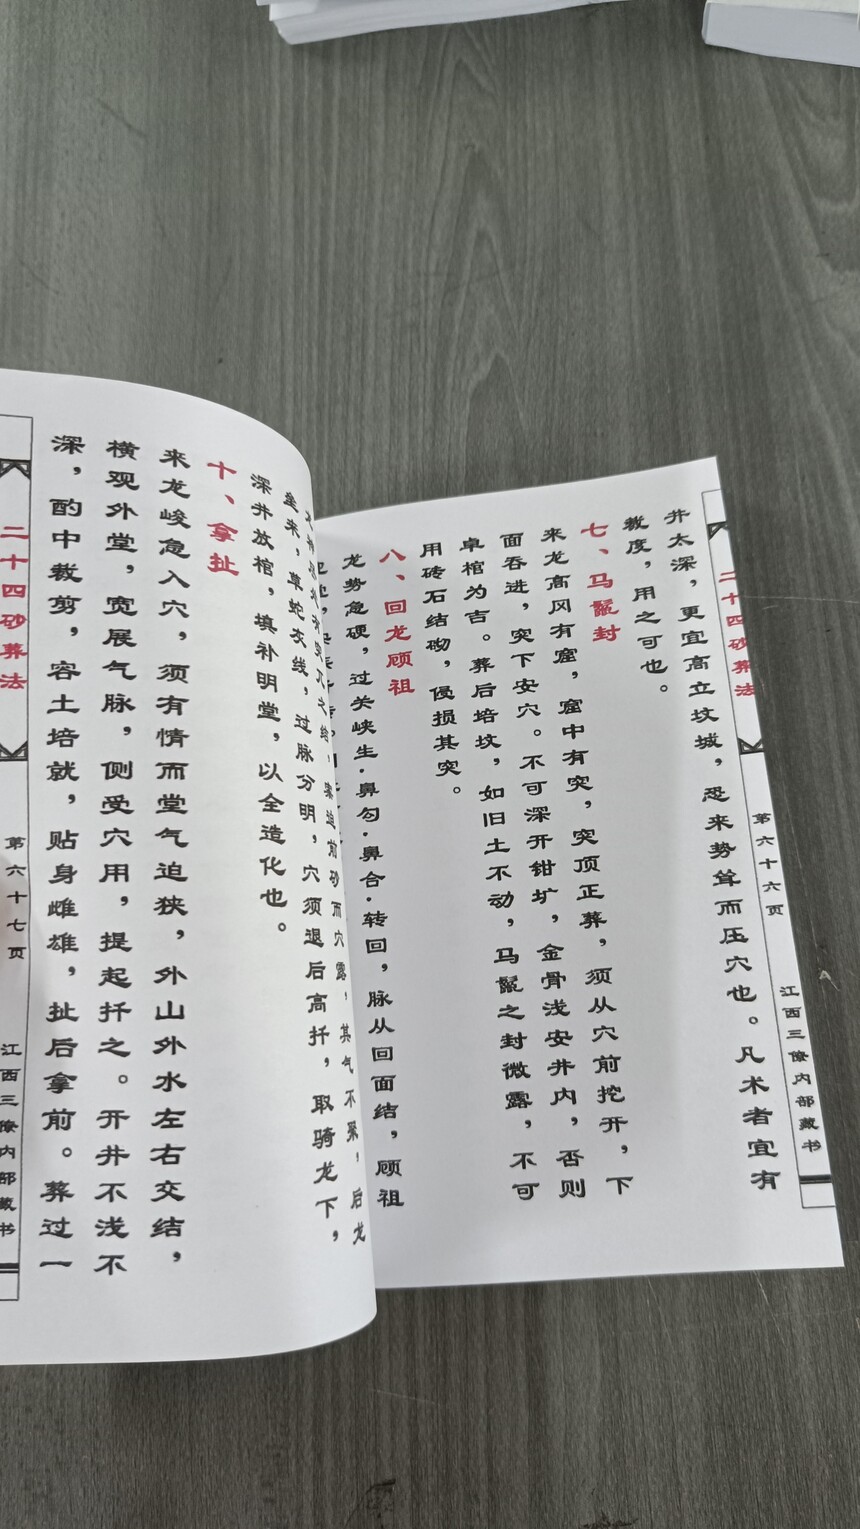 二十四砂葬法
第六十六页
江西三僚内部藏书
井太深，更宜高立坟城，忍来势耸而压穴也。凡术者宜有
裁度，用之可也。
七、马鬣封
来龙高冈有窟，窟中有突，突顶正葬，须从穴前挖开，下
面吞进，突下安穴。不可深开钳圹，金骨浅安井内，否则
卓棺为吉。葬后培坟，如旧土不动，马鬣之封微露，不可
用砖石结砌，侵损其突。
八、回龙顾祖
龙势急硬，过关峡生·鼻勾·鼻合·转回，脉从回面结，顾祖
穴露，其气不聚，后龙
来，草蛇灰线，过脉分明，穴须退后高扦，取骑龙下，
深井放棺，填补明堂，以全造化也。
十、拿扯
来龙峻急入穴，须有情而堂气迫狭，外山外水左右交结，
横观外堂，宽展气脉，侧受穴用，提起扦之。开井不浅不
深，酌中裁剪，客土培就，贴身雌雄，扯后拿前。葬过一
二十四砂葬法
第六十七页
江西三僚内部藏书